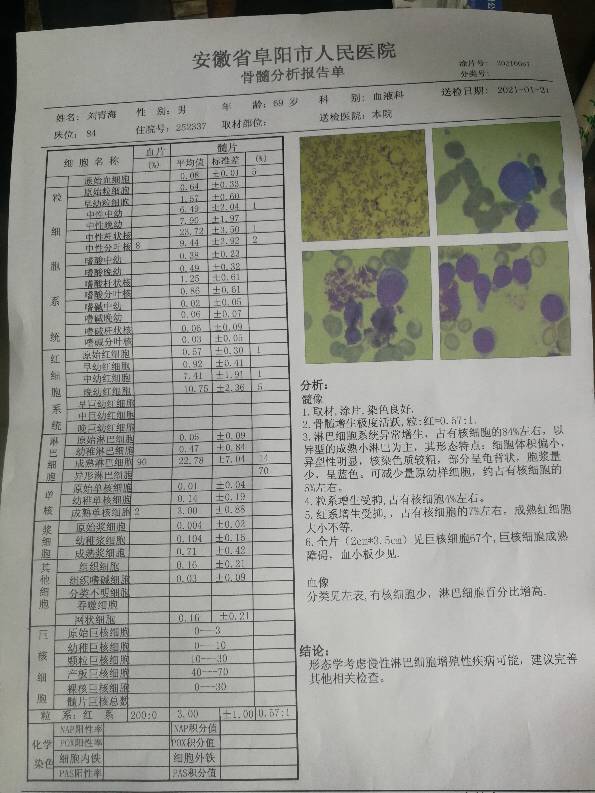 安徽省阜阳市人民医院
骨髓分析报告单
涂片号: 20210061
分类号:
姓名: 刘青海 性 别: 男 年 龄: 69 岁 科 别: 血液科 送检日期: 2021-01-21
床位: 84 住院号: 252337 取材部位: 送检医院: 本院
细 胞 名 称 血片 (%) 髓片
平均值 标准差 (%)
粒细胞系统
原始血细胞 0.08 ±0.01 5
原始粒细胞 0.64 ±0.33
早幼粒细胞 1.57 ±0.60
中性中幼 6.49 ±2.04 1
中性晚幼 7.90 ±1.97
中性杆状核 23.72 ±3.50 1
中性分叶核 8 9.44 ±2.92 2
嗜酸中幼 0.38 ±0.23
嗜酸晚幼 0.49 ±0.32
嗜酸杆状核 1.25 ±0.61
嗜酸分叶核 0.86 ±0.61
嗜碱中幼 0.02 ±0.05
嗜碱晚幼 0.06 ±0.07
嗜碱杆状核 0.06 ±0.09
嗜碱分叶核 0.03 ±0.05
红细胞系统
原始红细胞 0.57 ±0.30 1
早幼红细胞 0.92 ±0.41
中幼红细胞 7.41 ±1.91 1
晚幼红细胞 10.75 ±2.36 5
早巨幼红细胞
中巨幼红细胞
晚巨幼红细胞
淋巴细胞
原始淋巴细胞 0.05 ±0.09
幼稚淋巴细胞 0.47 ±0.84
成熟淋巴细胞 90 22.78 ±7.04 14
异形淋巴细胞 70
单核
原始单核细胞 0.01 ±0.04
幼稚单核细胞 0.14 ±0.19
成熟单核细胞 2 3.00 ±0.88
浆细胞
原始浆细胞 0.004 ±0.02
幼稚浆细胞 0.104 ±0.16
成熟浆细胞 0.71 ±0.42
其他细胞
组织细胞 0.16 ±0.21
组织嗜碱细胞 0.03 ±0.09
分类不明细胞
吞噬细胞
网状细胞 0.16 ±0.21
巨核细胞
原始巨核细胞 0--3
幼稚巨核细胞 0--10
颗粒巨核细胞 10--30
产板巨核细胞 40---70
裸核巨核细胞 0--30
髓片巨核总数
粒 系: 红 系 200:0 3.00 ±1.00 0.57:1
化学染色
NAP阳性率 NAP积分值
POX阳性率 POX积分值
细胞内铁 细胞外铁
PAS阳性率 PAS积分值
分析:
髓像
1.取材,涂片,染色良好.
2.骨髓增生极度活跃, 粒:红=0.57:1.
3.淋巴细胞系统异常增生, 占有核细胞的84%左右, 以
异型的成熟小淋巴为主, 其形态特点: 细胞体积偏小,
异型性明显, 核染色质较粗, 部分呈龟背状, 胞浆量
少, 呈蓝色; 可减少量原幼样细胞, 约占有核细胞的
5%左右。
4.粒系增生受抑, 占有核细胞4%左右。
5.红系增生受抑,, 占有核细胞的7%左右, 成熟红细胞
大小不等.
6.全片 (2cm*3.5cm) 见巨核细胞67个, 巨核细胞成熟
障碍, 血小板少见.
血像
分类见左表, 有核细胞少, 淋巴细胞百分比增高.
结论:
形态学考虑慢性淋巴细胞增殖性疾病可能, 建议完善
其他相关检查。